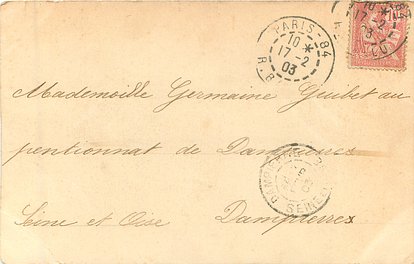 PARIS-84
10 *
17 -2
03
R. B
Mademoiselle Germaine Guibet au
pentionnat de Dampierrez
Seine et Oise Dampierrez